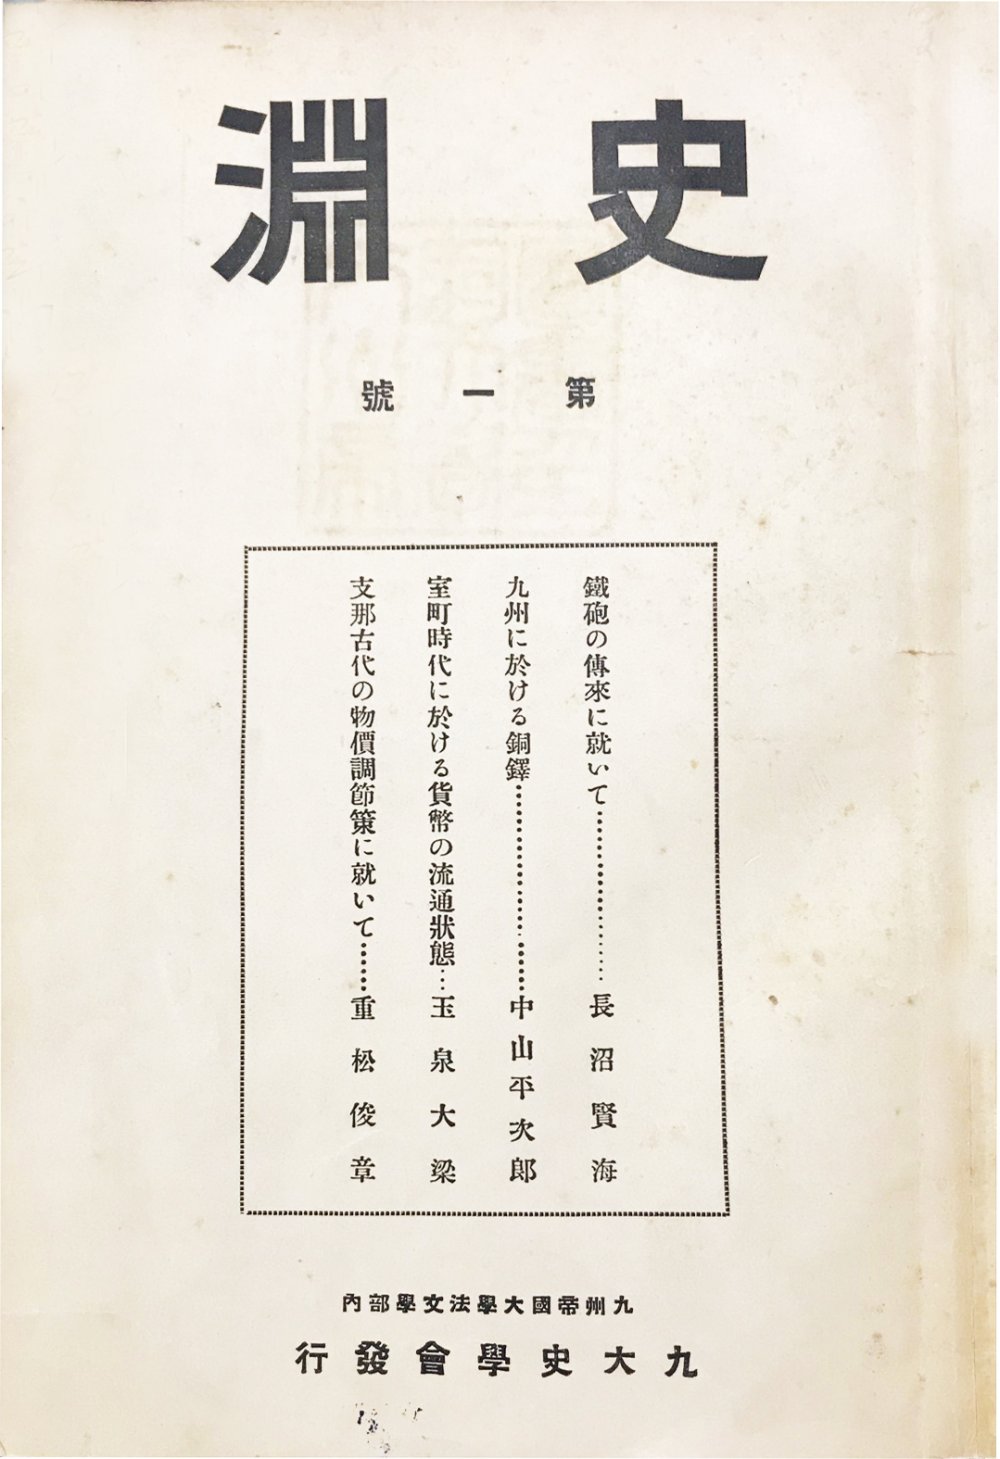 史淵
第一號
鐵砲の傳來に就いて……………………長沼賢海
九州に於ける銅鐸……………………中山平次郎
室町時代に於ける貨幣の流通狀態…玉泉大梁
支那古代の物價調節策に就いて……重松俊章
九州帝國大學法文學部內
九大史學會發行